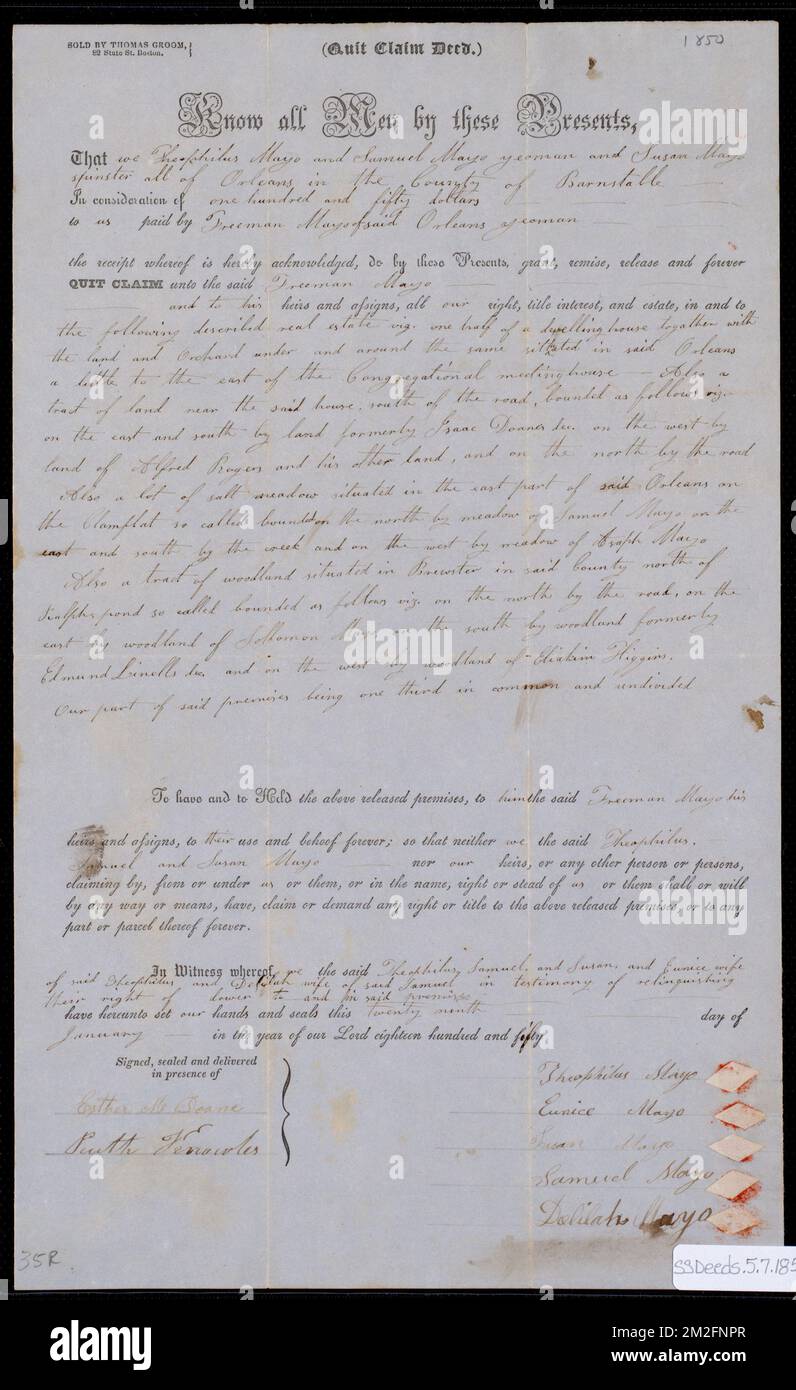 SOLD BY THOMAS GROOM,
82 State St. Boston.
(Quit Claim Deed.)
1850
Know all Men by these Presents,
That we Theophilus Mayo and Samuel Mayo yeoman and Susan Mayo
spinster all of Orleans in the County of Barnstable
In consideration of one hundred and fifty dollars
to us paid by Freeman Mayo of said Orleans yeoman
the receipt whereof is hereby acknowledged, do by these Presents, grant, remise, release and forever
QUIT CLAIM unto the said Freeman Mayo
and to his heirs and assigns, all our right, title interest, and estate, in and to
the following described real estate viz. one half of a dwelling house together with
the land and Orchard under and around the same situated in said Orleans
a little to the east of the Congregational meetinghouse — Also a
tract of land near the said house, south of the road, bounded as follows viz.
on the east and south by land formerly Isaac Doanes dec. on the west by
land of Alfred Rogers and his other land, and on the north by the road
Also a lot of salt meadow situated in the east part of said Orleans on
the Clamflat so called bounded on the north by meadow of Samuel Mayo on the
east and south by the creek and on the west by meadow of Asaph Mayo
Also a tract of woodland situated in Brewster in said County north of
Ralphs pond so called bounded as follows viz. on the north by the road, on the
east by woodland of Sollomon Mayo on the south by woodland formerly
Edmund Linells dec. and on the west by woodland of Eliakim Higgins.
Our part of said premises being one third in common and undivided
To have and to Hold the above released premises, to him the said Freeman Mayo his
heirs and assigns, to their use and behoof forever; so that neither we the said Theophilus.
Samuel and Susan Mayo nor our heirs, or any other person or persons,
claiming by, from or under us or them, or in the name, right or stead of us or them shall or will
by any way or means, have, claim or demand any right or title to the above released premises, or to any
part or parcel thereof forever.
In Witness whereof, we the said Theophilus, Samuel, and Susan, and Eunice wife
of said Theophilus and Delilah wife of said Samuel in testimony of relinquishing
their right of dower to and in said premises
have hereunto set our hands and seals this twenty ninth day of
January in the year of our Lord eighteen hundred and fifty
Signed, sealed and delivered
in presence of
Esther M Doane
Ruth Knowles
Theophilus Mayo
Eunice Mayo
Susan Mayo
Samuel Mayo
Delilah Mayo
35R.
SSDeeds.5.7.185
alamy
Image ID: 2M2FNPR
www.alamy.com